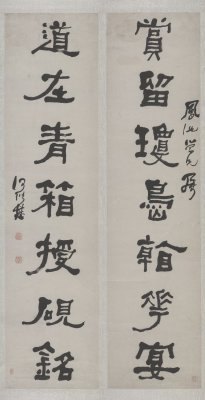 鳳池兄
賞留瓊島翰華宴
道在青箱授硯銘
何紹基